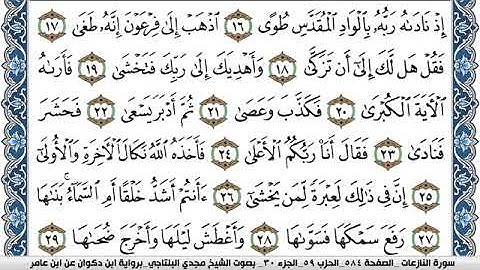 إِذْ نَادَىٰهُ رَبُّهُۥ بِٱلْوَادِ ٱلْمُقَدَّسِ طُوًى ١٦ ٱذْهَبْ إِلَىٰ فِرْعَوْنَ إِنَّهُۥ طَغَىٰ ١٧
فَقُلْ هَل لَّكَ إِلَىٰ أَن تَزَكَّىٰ ١٨ وَأَهْدِيَكَ إِلَىٰ رَبِّكَ فَتَخْشَىٰ ١٩ فَأَرَىٰهُ
ٱلْأٓيَةَ ٱلْكُبْرَىٰ ٢٠ فَكَذَّبَ وَعَصَىٰ ٢١ ثُمَّ أَدْبَرَ يَسْعَىٰ ٢٢ فَحَشَرَ
فَنَادَىٰ ٢٣ فَقَالَ أَنَا۠ رَبُّكُمُ ٱلْأَعْلَىٰ ٢٤ فَأَخَذَهُ ٱللَّهُ نَكَالَ ٱلْأٓخِرَةِ وَٱلْأُولَىٰٓ
٢٥ إِنَّ فِي ذَٰلِكَ لَعِبْرَةً لِّمَن يَخْشَىٰٓ ٢٦ ءَأَنتُمْ أَشَدُّ خَلْقًا أَمِ ٱلسَّمَآءُ ۚ بَنَىٰهَا
٢٧ رَفَعَ سَمْكَهَا فَسَوَّىٰهَا ٢٨ وَأَغْطَشَ لَيْلَهَا وَأَخْرَجَ ضُحَىٰهَا ٢٩
سورة النازعات_الصفحة ٥٨٤_الحزب ٥٩_الجزء ٣٠_ بصوت الشيخ مجدي البلتاجي_برواية ابن ذكوان عن ابن عامر